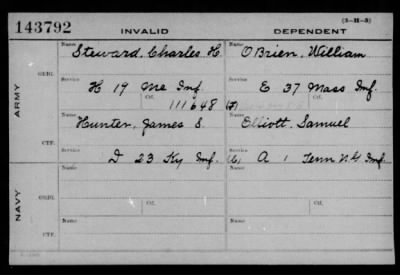 143792 INVALID DEPENDENT (3-II-3)
Name Steward, Charles H. Name O'Brien, William
ARMY ORIG. Service H 19 Me Inf. Service E 37 Mass Inf.
Ctf. 111648 Ctf.
CTF. Name Hunter, James S. Name Elliott, Samuel
Service D 23 Ky Inf. Service A 1 Tenn Inf.
NAVY ORIG. Name Ctf. Name Ctf.
CTF. Name Name